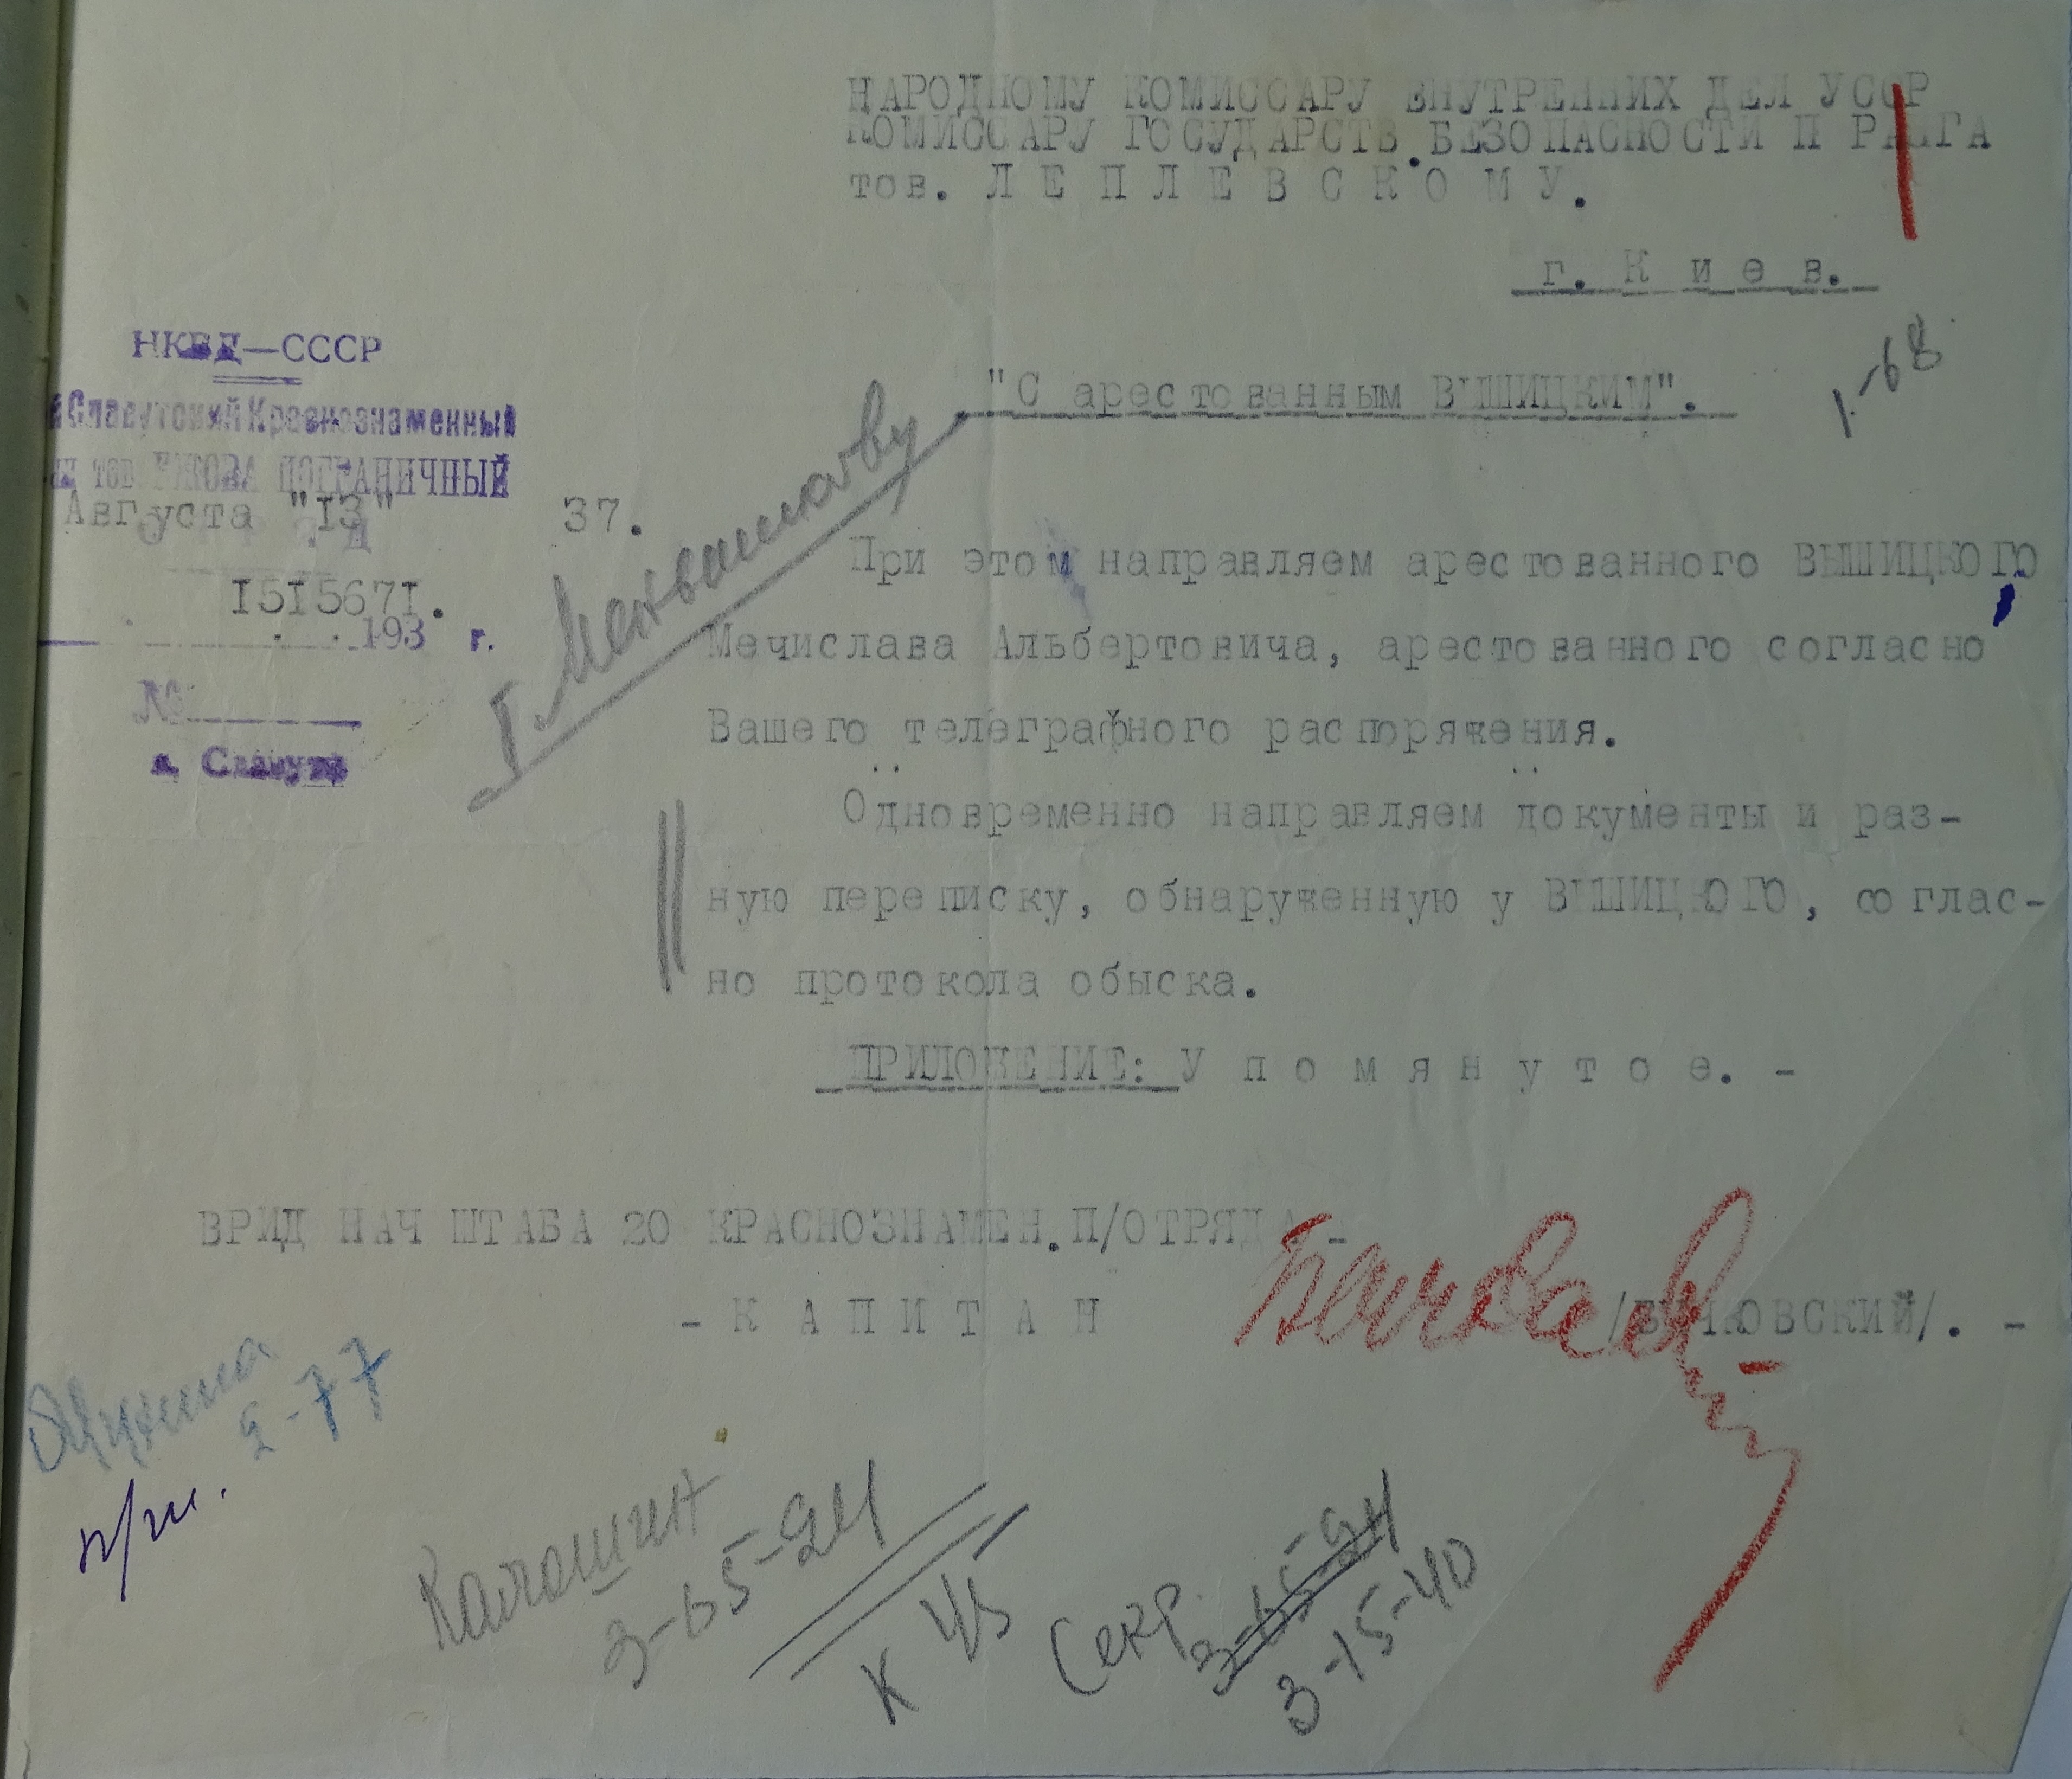 НАРОДНОМУ КОМИССАРУ ВНУТРЕННИХ ДЕЛ УССР
КОМИССАРУ ГОСУДАРСТВ.БЕЗОПАСНОСТИ II РАНГА
тов. Л Е П Л Е В С К О М У.
г. К и е в.
НКВД—СССР
Славутский Краснознаменный
тов ЕЖОВА ПОГРАНИЧНЫЙ
Августа "I3" 37.
I5I567I.
193 г.
№
г. Славута
"С арестованным ВЫШИЦКИМ".
1-68
При этом направляем арестованного ВЫШИЦКОГО
Мечислава Альбертовича, арестованного согласно
Вашего телеграфного распоряжения.
Одновременно направляем документы и раз-
ную переписку, обнаруженную у ВЫШИЦКОГО, соглас-
но протокола обыска.
ПРИЛОЖЕНИЕ: У п о м я н у т о е. -
ВРИД НАЧ ШТАБА 20 КРАСНОЗНАМЕН.П/ОТРЯДА -
- К А П И Т А Н /БЫЧКОВСКИЙ/. -
2-77
Калошин
3-65-24
К 4/5
Секр.
3-65-24
3-15-40